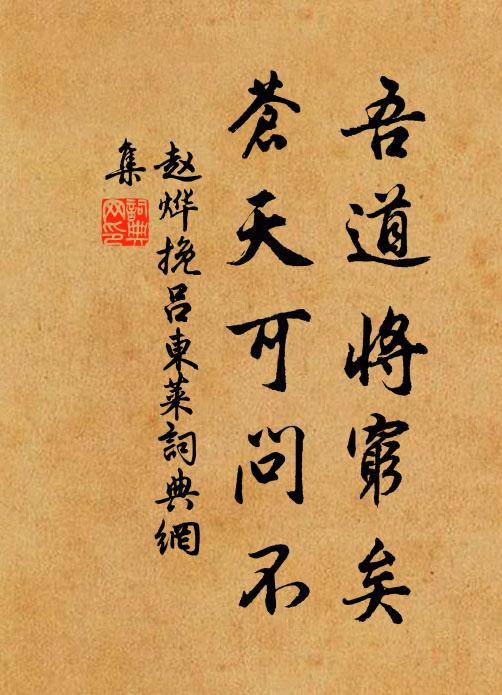 吾道將窮矣
蒼天可問不
赵烨挽吕東萊詞典網
集
詞典網印